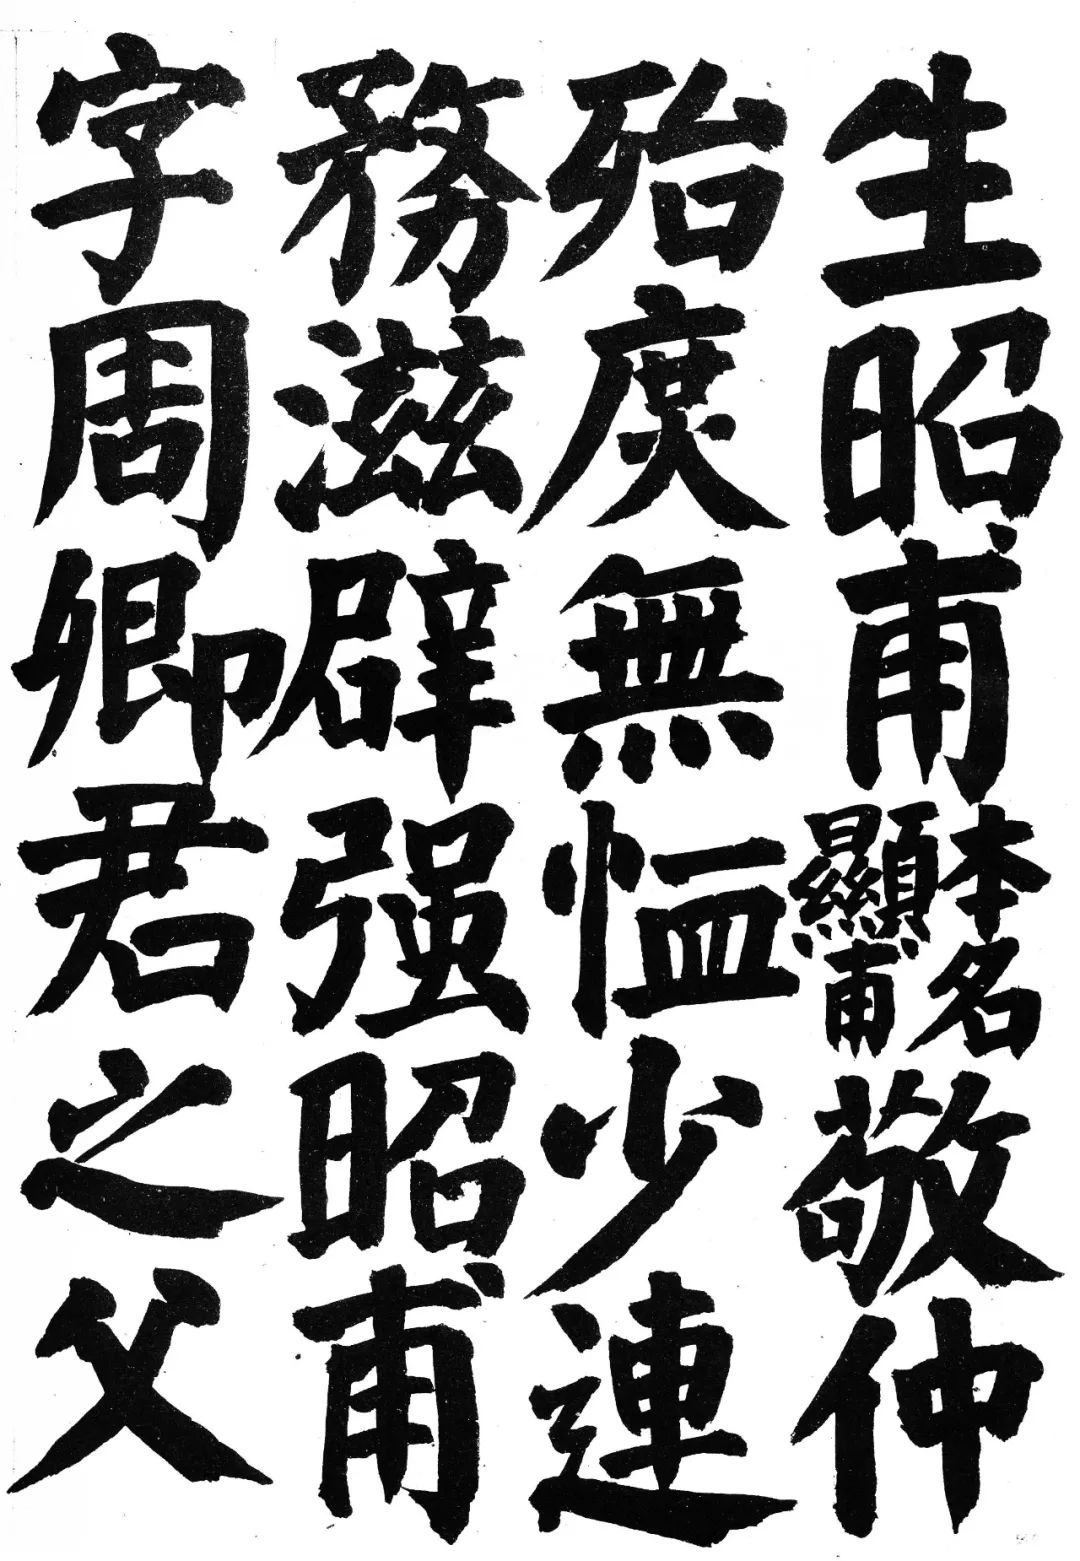 生昭甫本名顯甫敬仲
殆庶無恤少連
務滋辟强昭甫
字周卿君之父